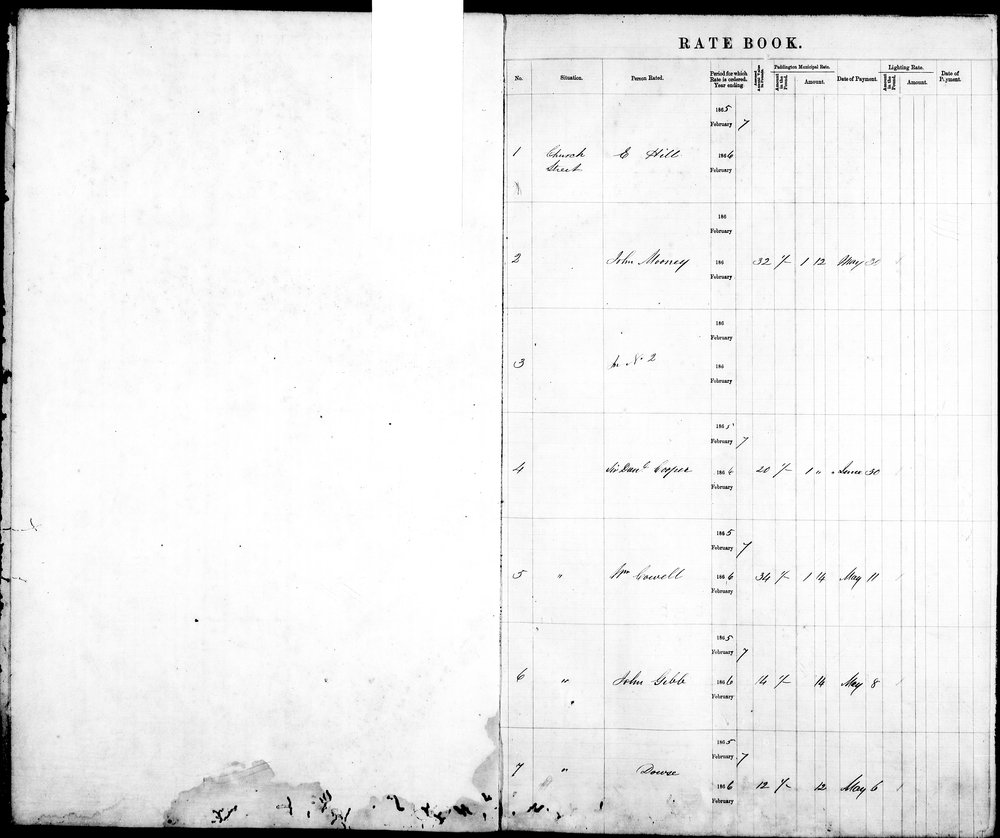 RATE BOOK.
No. Situation. Person Rated. Period for which Rate is ordered. Year ending Annual Value in Pounds. Paddington Municipal Rate. Amount in the Pound. Amount. Date of Payment. Lighting Rate. Amount in the Pound. Amount. Date of Payment.
1865
February 7
1 Church E Hill 1866
Street February
186
February
2 John Mooney 186 32 /- 1 12 May 30
February
186
February
3 No. 2 186
February
1865
February 7
4 Sir Danl. Cooper 1866 20 /- 1 " June 30
February
1865
February 7
5 " Wm Cowell 1866 34 /- 1 14 May 11
February
1865
February 7
6 " John Gibb 1866 14 /- 14 May 8
February
1865
February 7
7 " Dowse 1866 12 /- 12 May 6
February